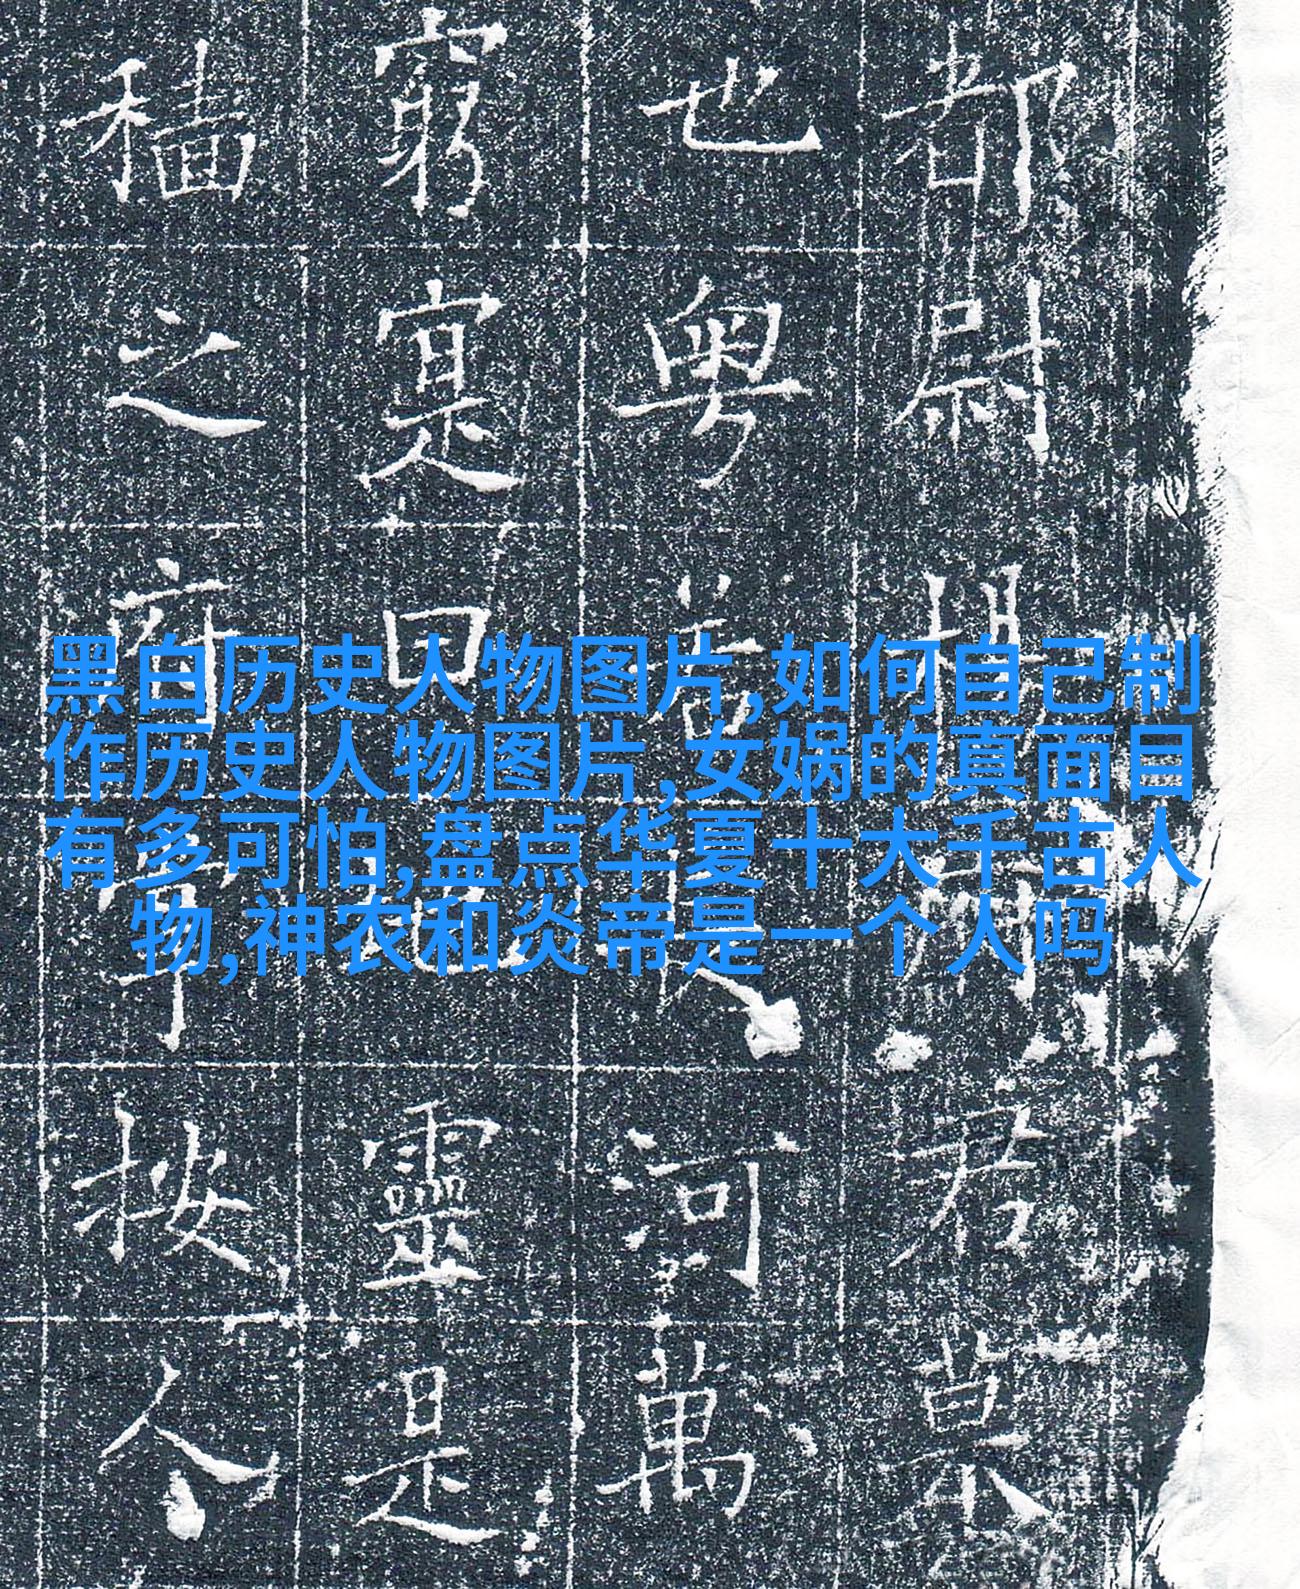 都尉君
也粤若河萬
窮寔曰靈是
穡之府按人
黑白历史人物图片,如何自己制
作历史人物图片,女娲的真面目
有多可怕,盘点华夏十大千古人
物,神农和炎帝是一个人吗